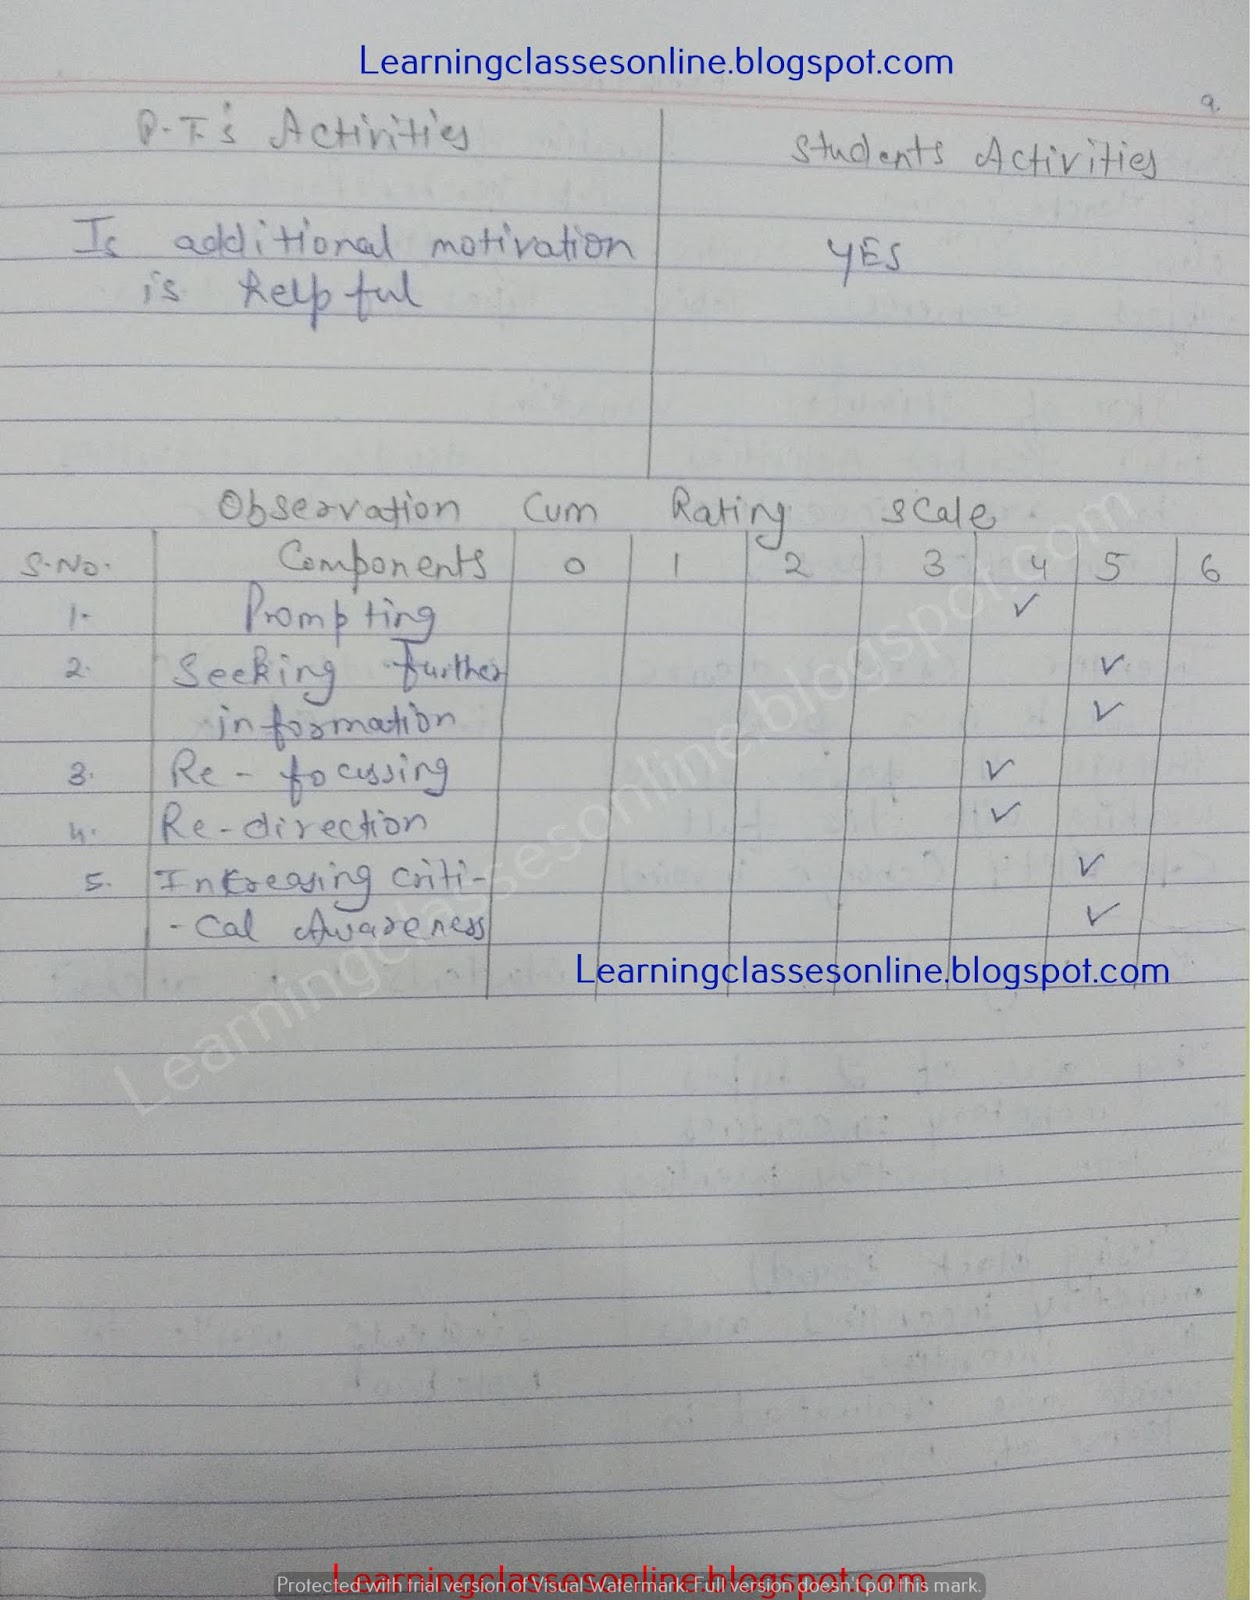 Learningclassesonline.blogspot.com
9.
P.T.'s Activities
Students Activities
Is additional motivation
YES
is helpful
Observation Cum Rating Scale
S.No. Components 0 1 2 3 4 5 6
1. Prompting ✓
2. Seeking Further ✓
information ✓
3. Re-focussing ✓
4. Re-direction ✓
5. Increasing criti- ✓
-Cal Awareness ✓
Learningclassesonline.blogspot.com
Learningclassesonline.blogspot.com
Learningclassesonline.blogspot.com
Protected with trial version of Visual Watermark. Full version doesn't put this mark.